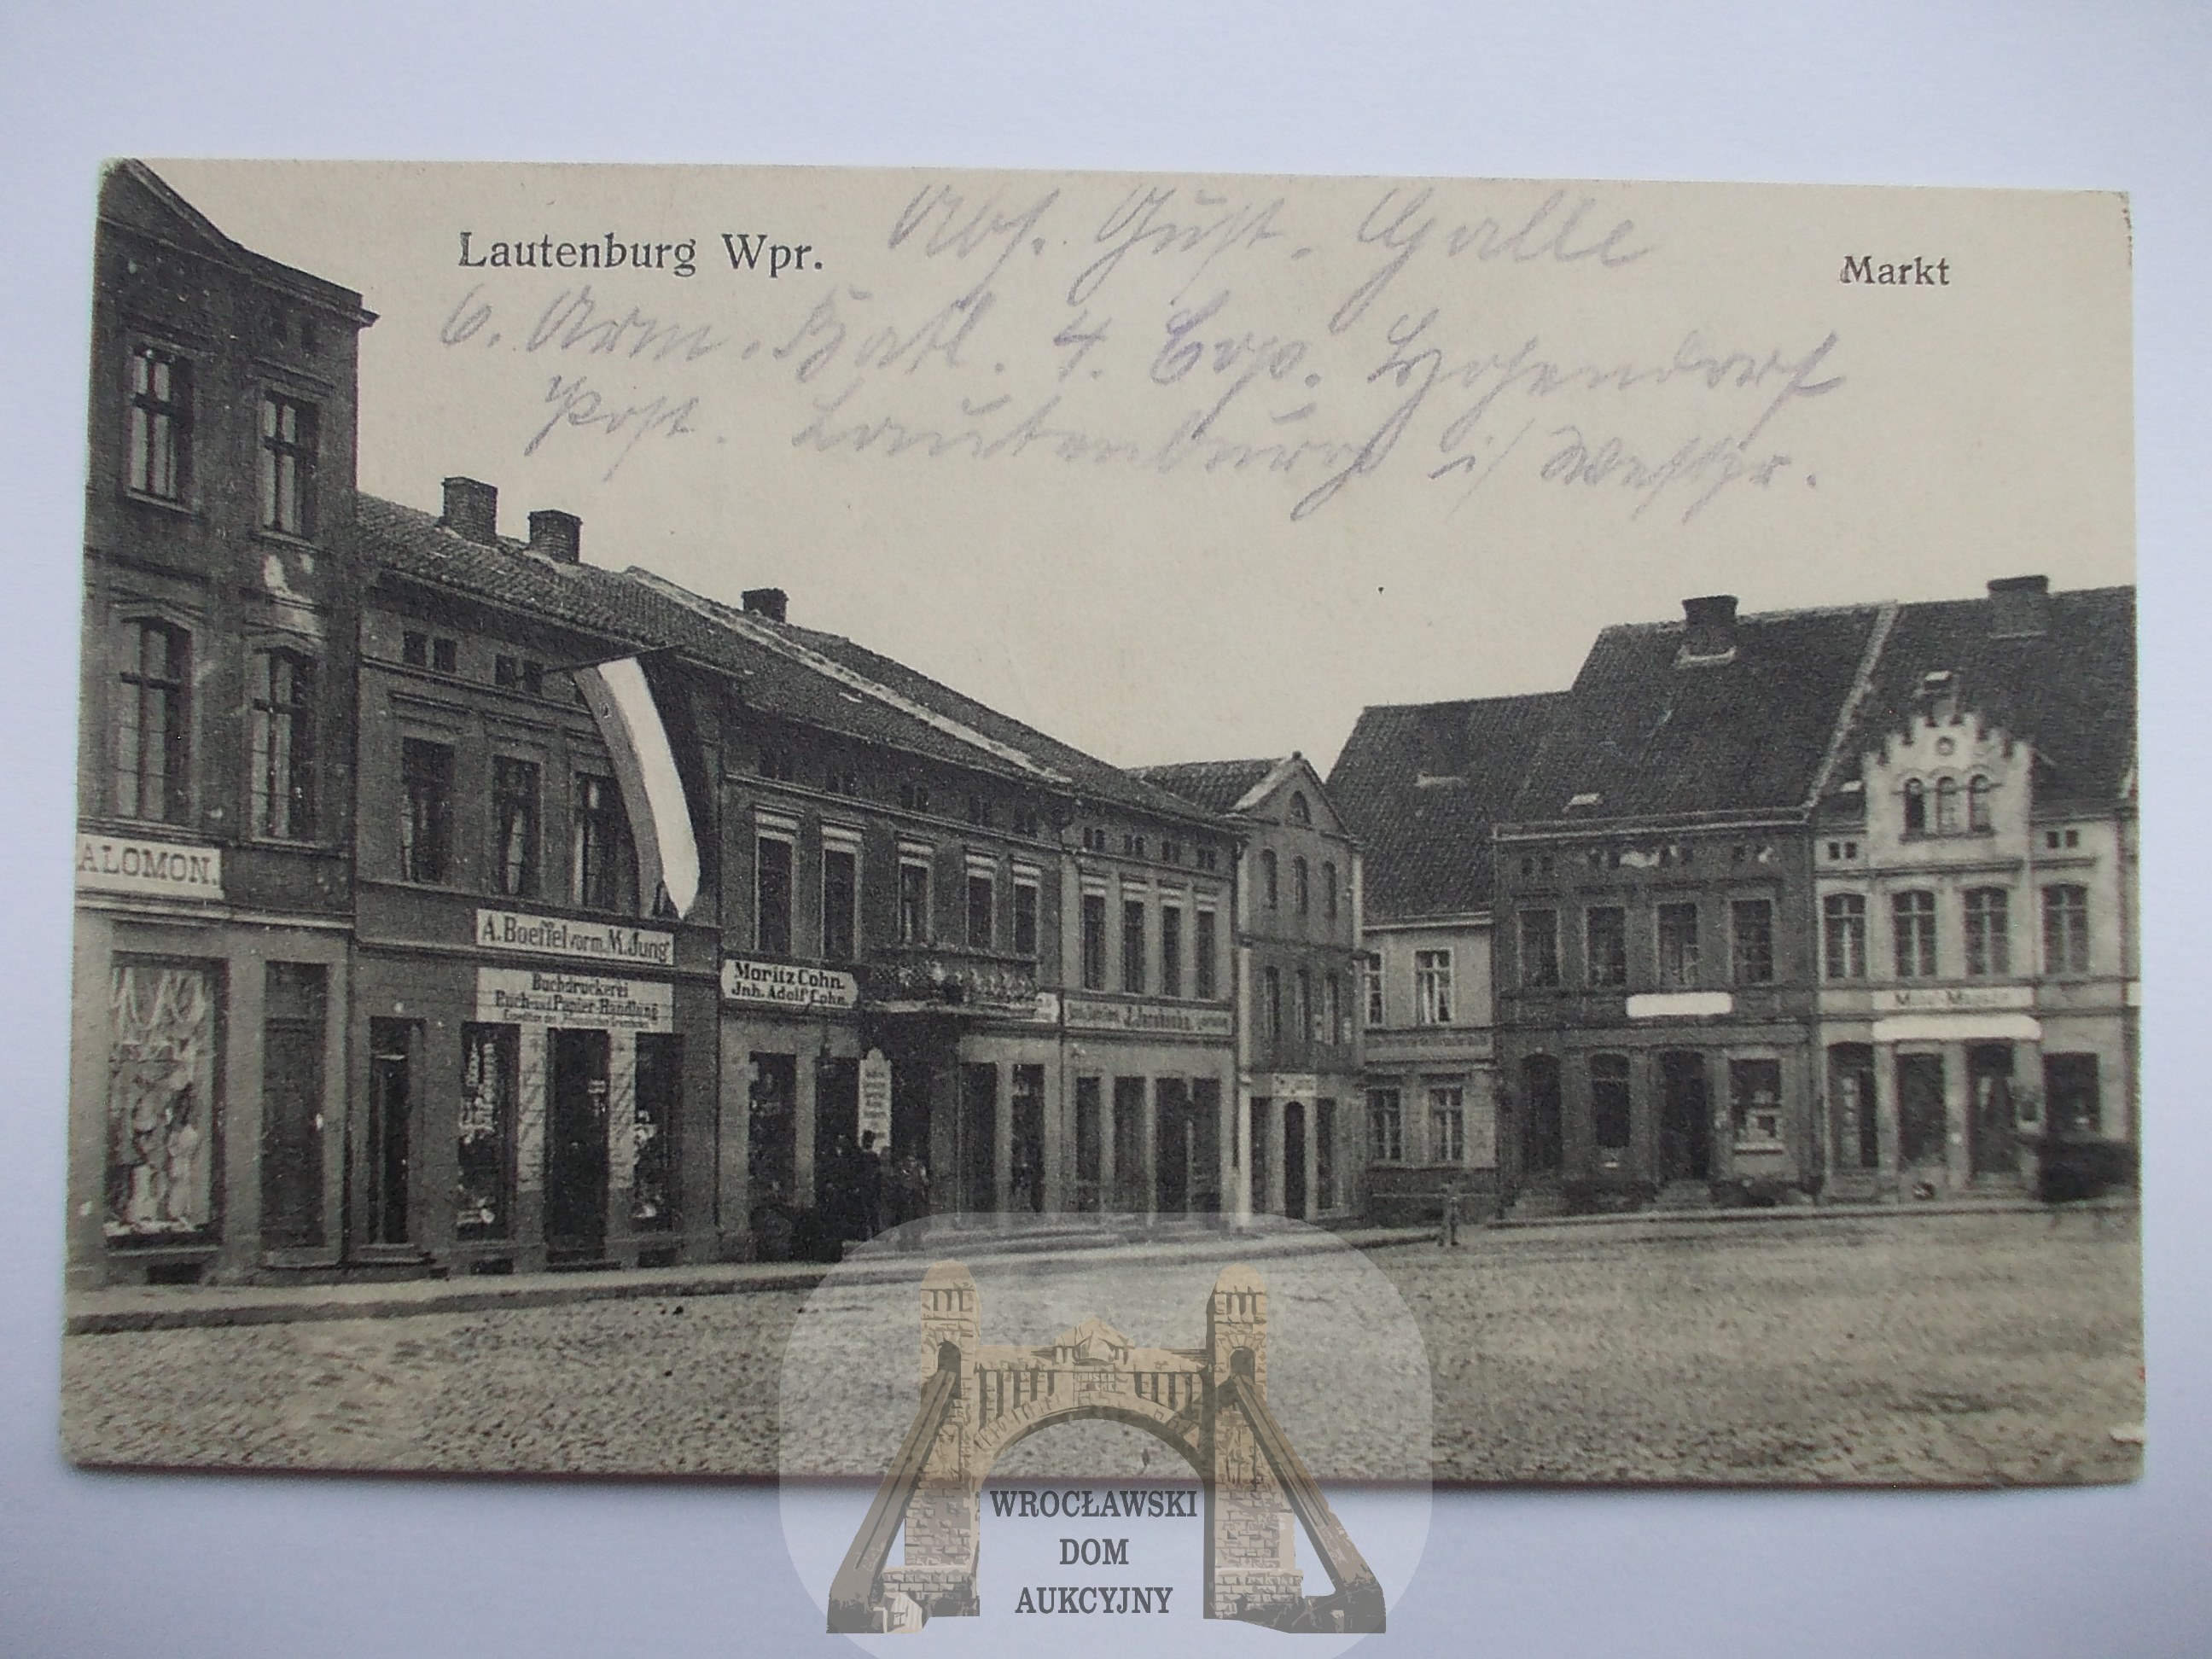 Lautenburg Wpr.
Markt
Abs. Gust. Galle
6. Arm. Batl. 4. Exp. Hohendorf
Post. Lautenburg i/ Westpr.
ALOMON.
A. Boeffel vorm. M. Jung
Buchdruckerei
Buch- und Papier-Handlung
Moritz Cohn.
Jnh. Adolf Cohn.
WROCŁAWSKI
DOM
AUKCYJNY